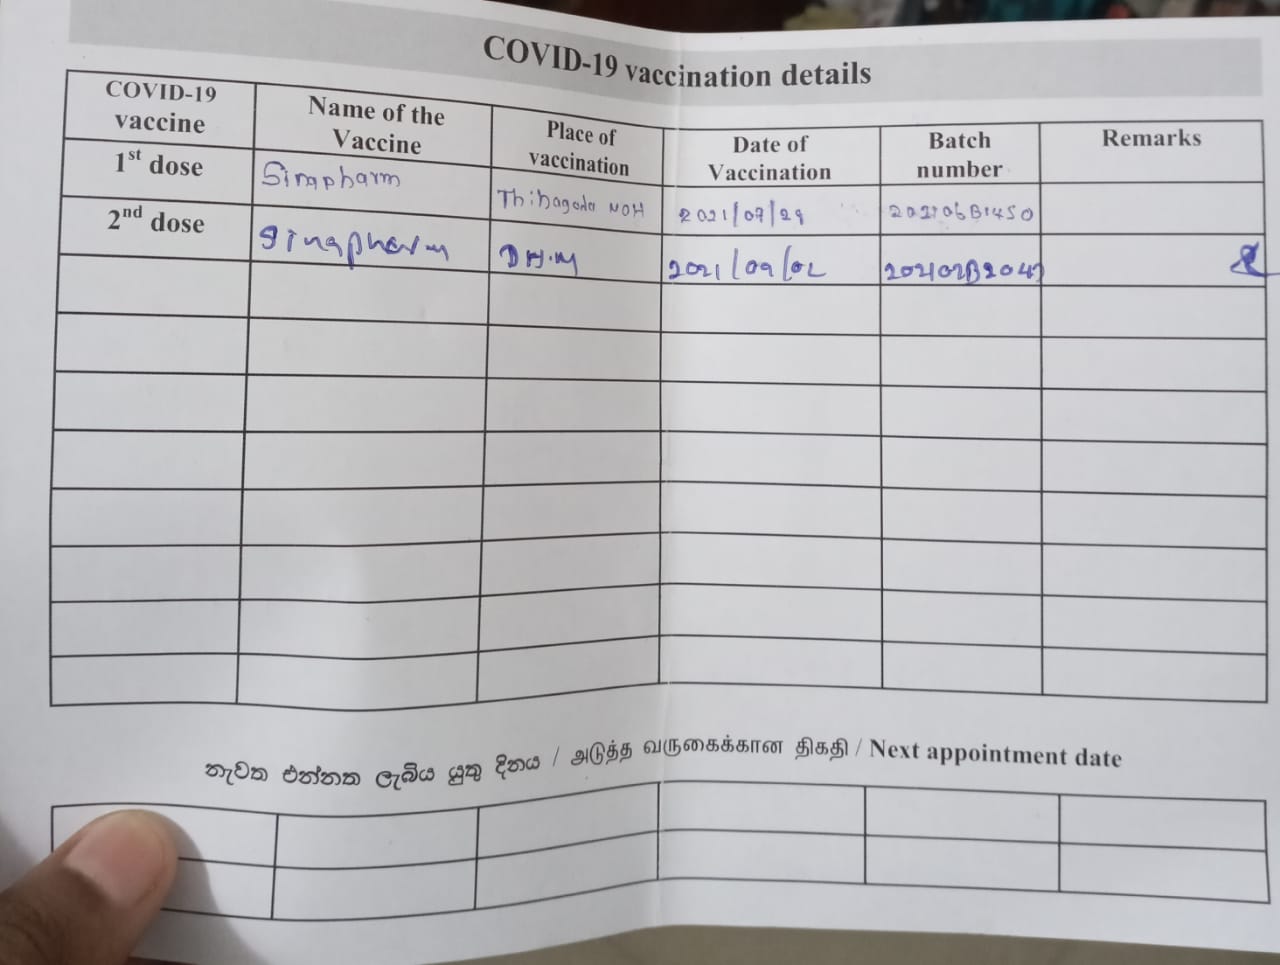 COVID-19 vaccination details
COVID-19 vaccine Name of the Vaccine Place of vaccination Date of Vaccination Batch number Remarks
1st dose Sinapharm Thihagoda MOH 2021/07/29 202106B1450
2nd dose Sinapharm DH.M 2021/09/02 202102B2047
නැවත එන්නත ලැබිය යුතු දිනය / அடுத்த வருகைக்கான திகதி / Next appointment date